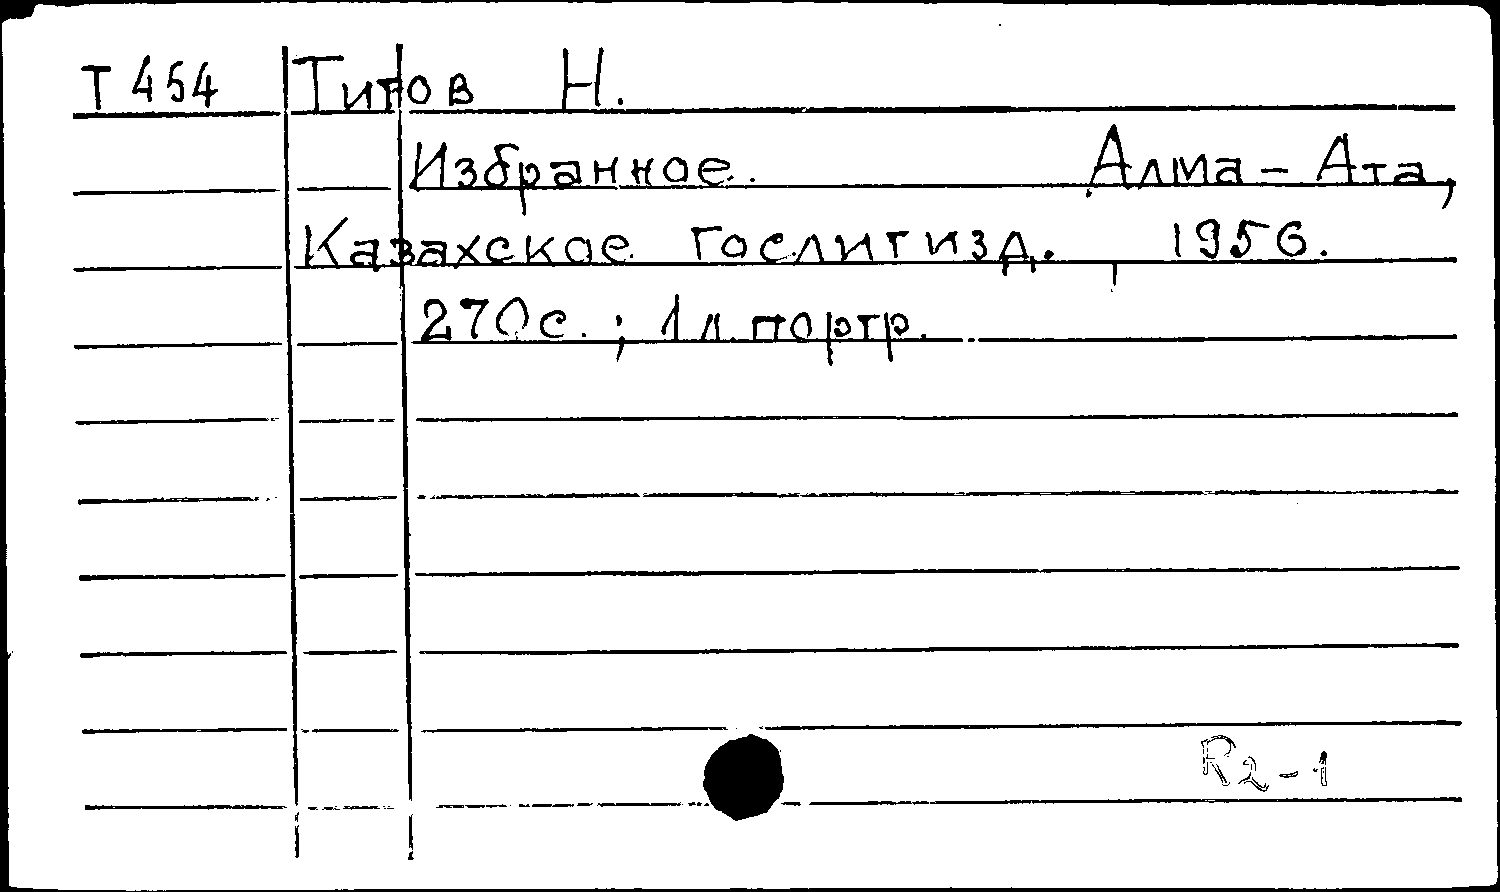 Т 454 Титов Н.
Избранное. Алма-Ата,
Казахское Гослитизд., 1956.
270с.; 1 л. портр.
R2-1